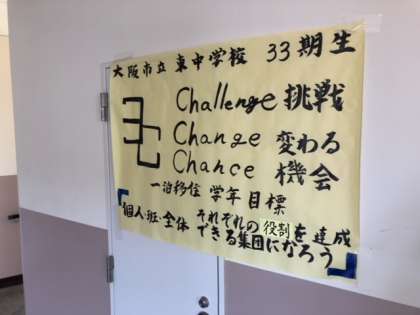 大阪市立 東中学校 33期生
3C
Challenge 挑戦
Change 変わる
Chance 機会
一泊移住 学年目標
個人・班・全体 それぞれの役割を達成
できる集団になろう